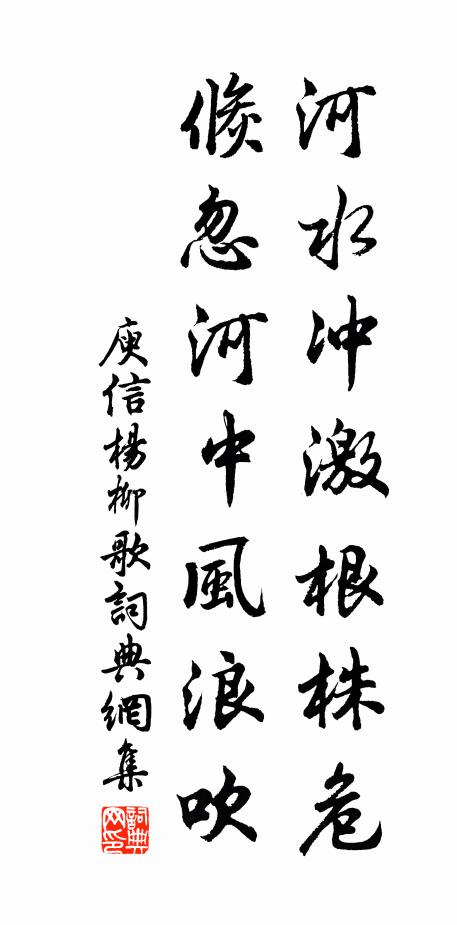 河水冲激根株危
倐忽河中風浪吹
庾信楊柳歌詞典網集
詞典網印